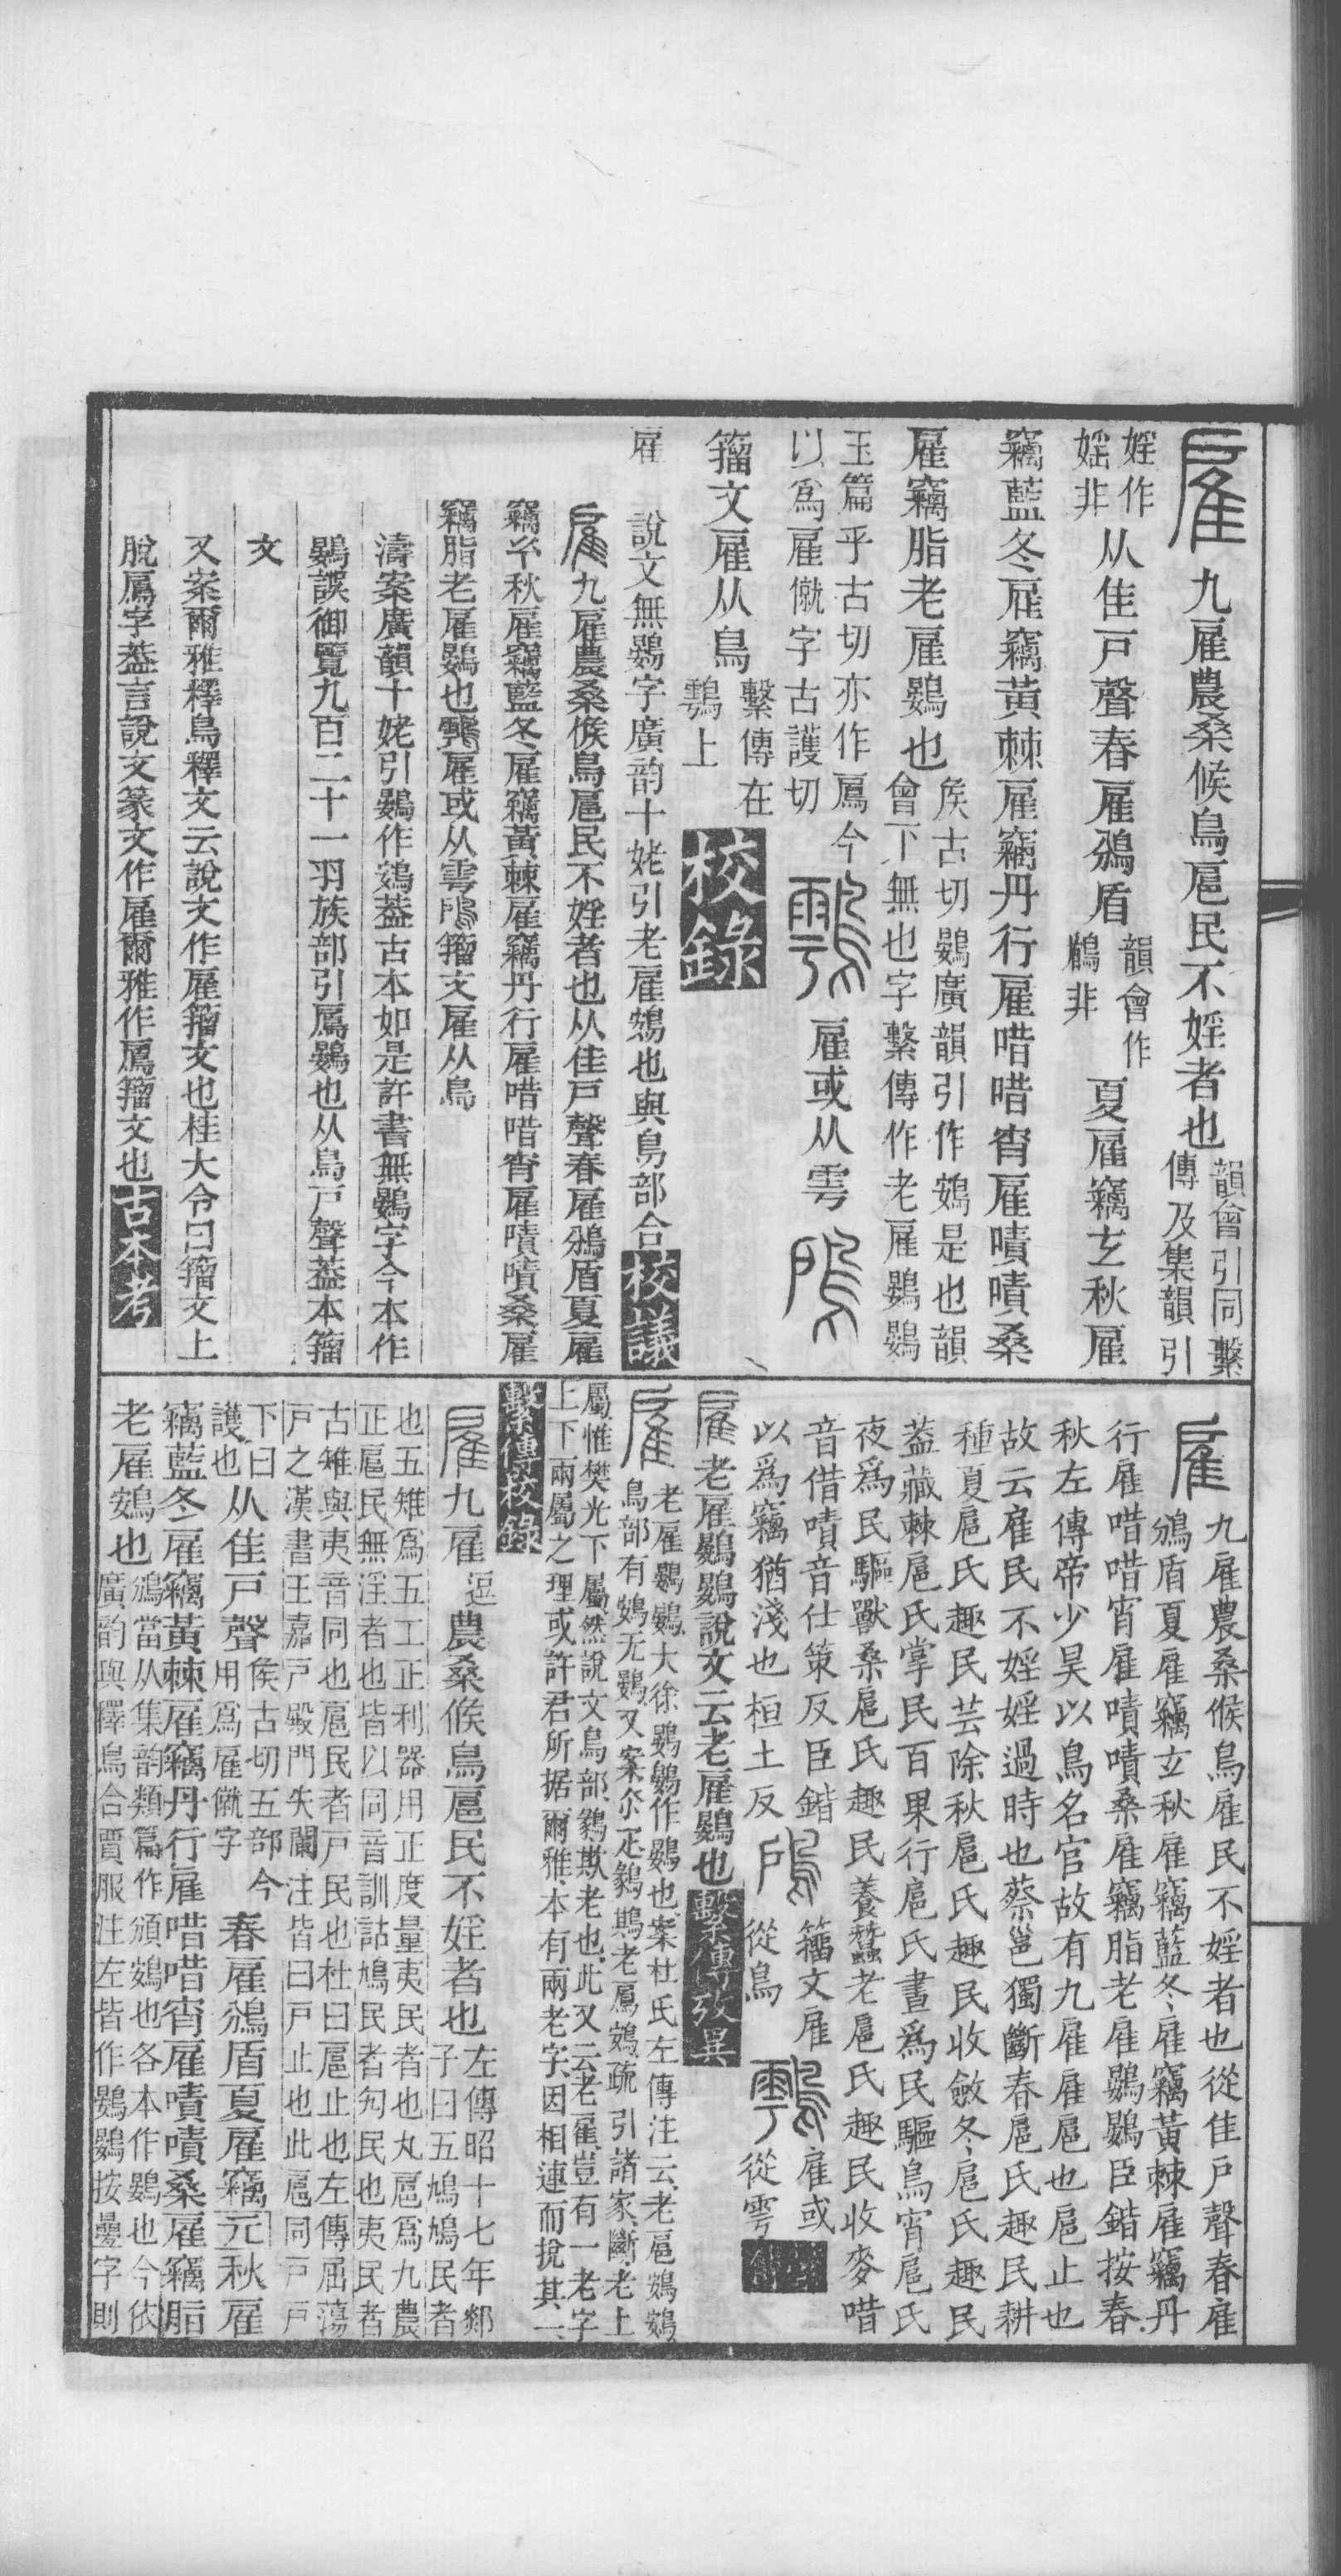 雇九雇農桑候鳥扈民不婬者也韻會引同繫傳及集韻引
婬作婬非从隹戶聲春雇鳻盾韻會作鶞非夏雇竊玄秋雇
竊藍冬雇竊黃棘雇竊丹行雇唶唶宵雇嘖嘖桑
雇竊脂老雇鷃也矦古切鷃廣韻引作鴳是也韻會下無也字繫傳作老雇鷃鷃
玉篇乎古切亦作鳸今以爲雇僦字古護切䨼雇或从雩鳸
籒文雇从鳥繫傳在䨼上校錄
雇說文無鷃字廣韵十姥引老雇鴳也與鳥部合校議
雇九雇農桑候鳥扈民不婬者也从隹戶聲春雇鳻盾夏雇
竊玄秋雇竊藍冬雇竊黃棘雇竊丹行雇唶唶宵雇嘖嘖桑雇
竊脂老雇鷃也䨼雇或从雩鳸籒文雇从鳥
濤案廣韻十姥引鷃作鴳葢古本如是許書無鷃字今本作
鷃誤御覽九百二十一羽族部引鳸鷃也从鳥戶聲葢本籒
文
又案爾雅釋鳥釋文云說文作雇籒文也桂大令曰籒文上
脫鳸字葢言說文篆文作雇爾雅作鳸籒文也古本考
雇九雇農桑候鳥雇民不婬者也從隹戶聲春雇
鳻盾夏雇竊玄秋雇竊藍冬雇竊黃棘雇竊丹
行雇唶唶宵雇嘖嘖桑雇竊脂老雇鷃鷃臣鍇按春
秋左傳帝少昊以鳥名官故有九雇雇扈也扈止也
故云雇民不婬婬過時也蔡邕獨斷春扈氏趣民耕
種夏扈氏趣民芸除秋扈氏趣民收斂冬扈氏趣民
葢藏棘扈氏掌民百果行扈氏晝爲民驅鳥宵扈氏
夜爲民驅獸桑扈氏趣民養蠶老扈氏趣民收麥唶
音借嘖音仕策反臣鍇以爲竊猶淺也桓土反鳸籒文雇從鳥䨼雇或從雩
雇老雇鷃鷃說文云老雇鷃也繫傳攷異
雇老雇鷃鷃大徐鷃鷃作鷃也案杜氏左傳注云老扈鴳鴳
鳥部有鴳无鷃又案尒疋鶨鶀老鳸鴳疏引諸家斷老上
屬惟樊光下屬然說文鳥部鶨欺老也此又云老雇豈有一老字
上下兩屬之理或許君所据爾雅本有兩老字因相連而挩其一
繫傳校錄
雇九雇逗農桑候鳥扈民不婬者也左傳昭十七年郯子曰五鳩鳩民者
也五雉爲五工正利器用正度量夷民者也九扈爲九農
正扈民無淫者也皆以同音訓詁鳩民者勼民也夷民者
古雉與夷音同也扈民者戶民也杜曰扈止也左傳屈蕩
戶之漢書王嘉戶殿門失闌注皆曰戶止也此扈同戶戶
下曰護也从隹戶聲矦古切五部今用爲雇僦字春雇鳻盾夏雇竊元秋雇
竊藍冬雇竊黃棘雇竊丹行雇唶唶宵雇嘖嘖桑雇竊脂
老雇鴳也鳻當从集韵類篇作頒鴳也各本作鷃也今依廣韵與釋鳥合賈服注左皆作鷃鷃按疊字則